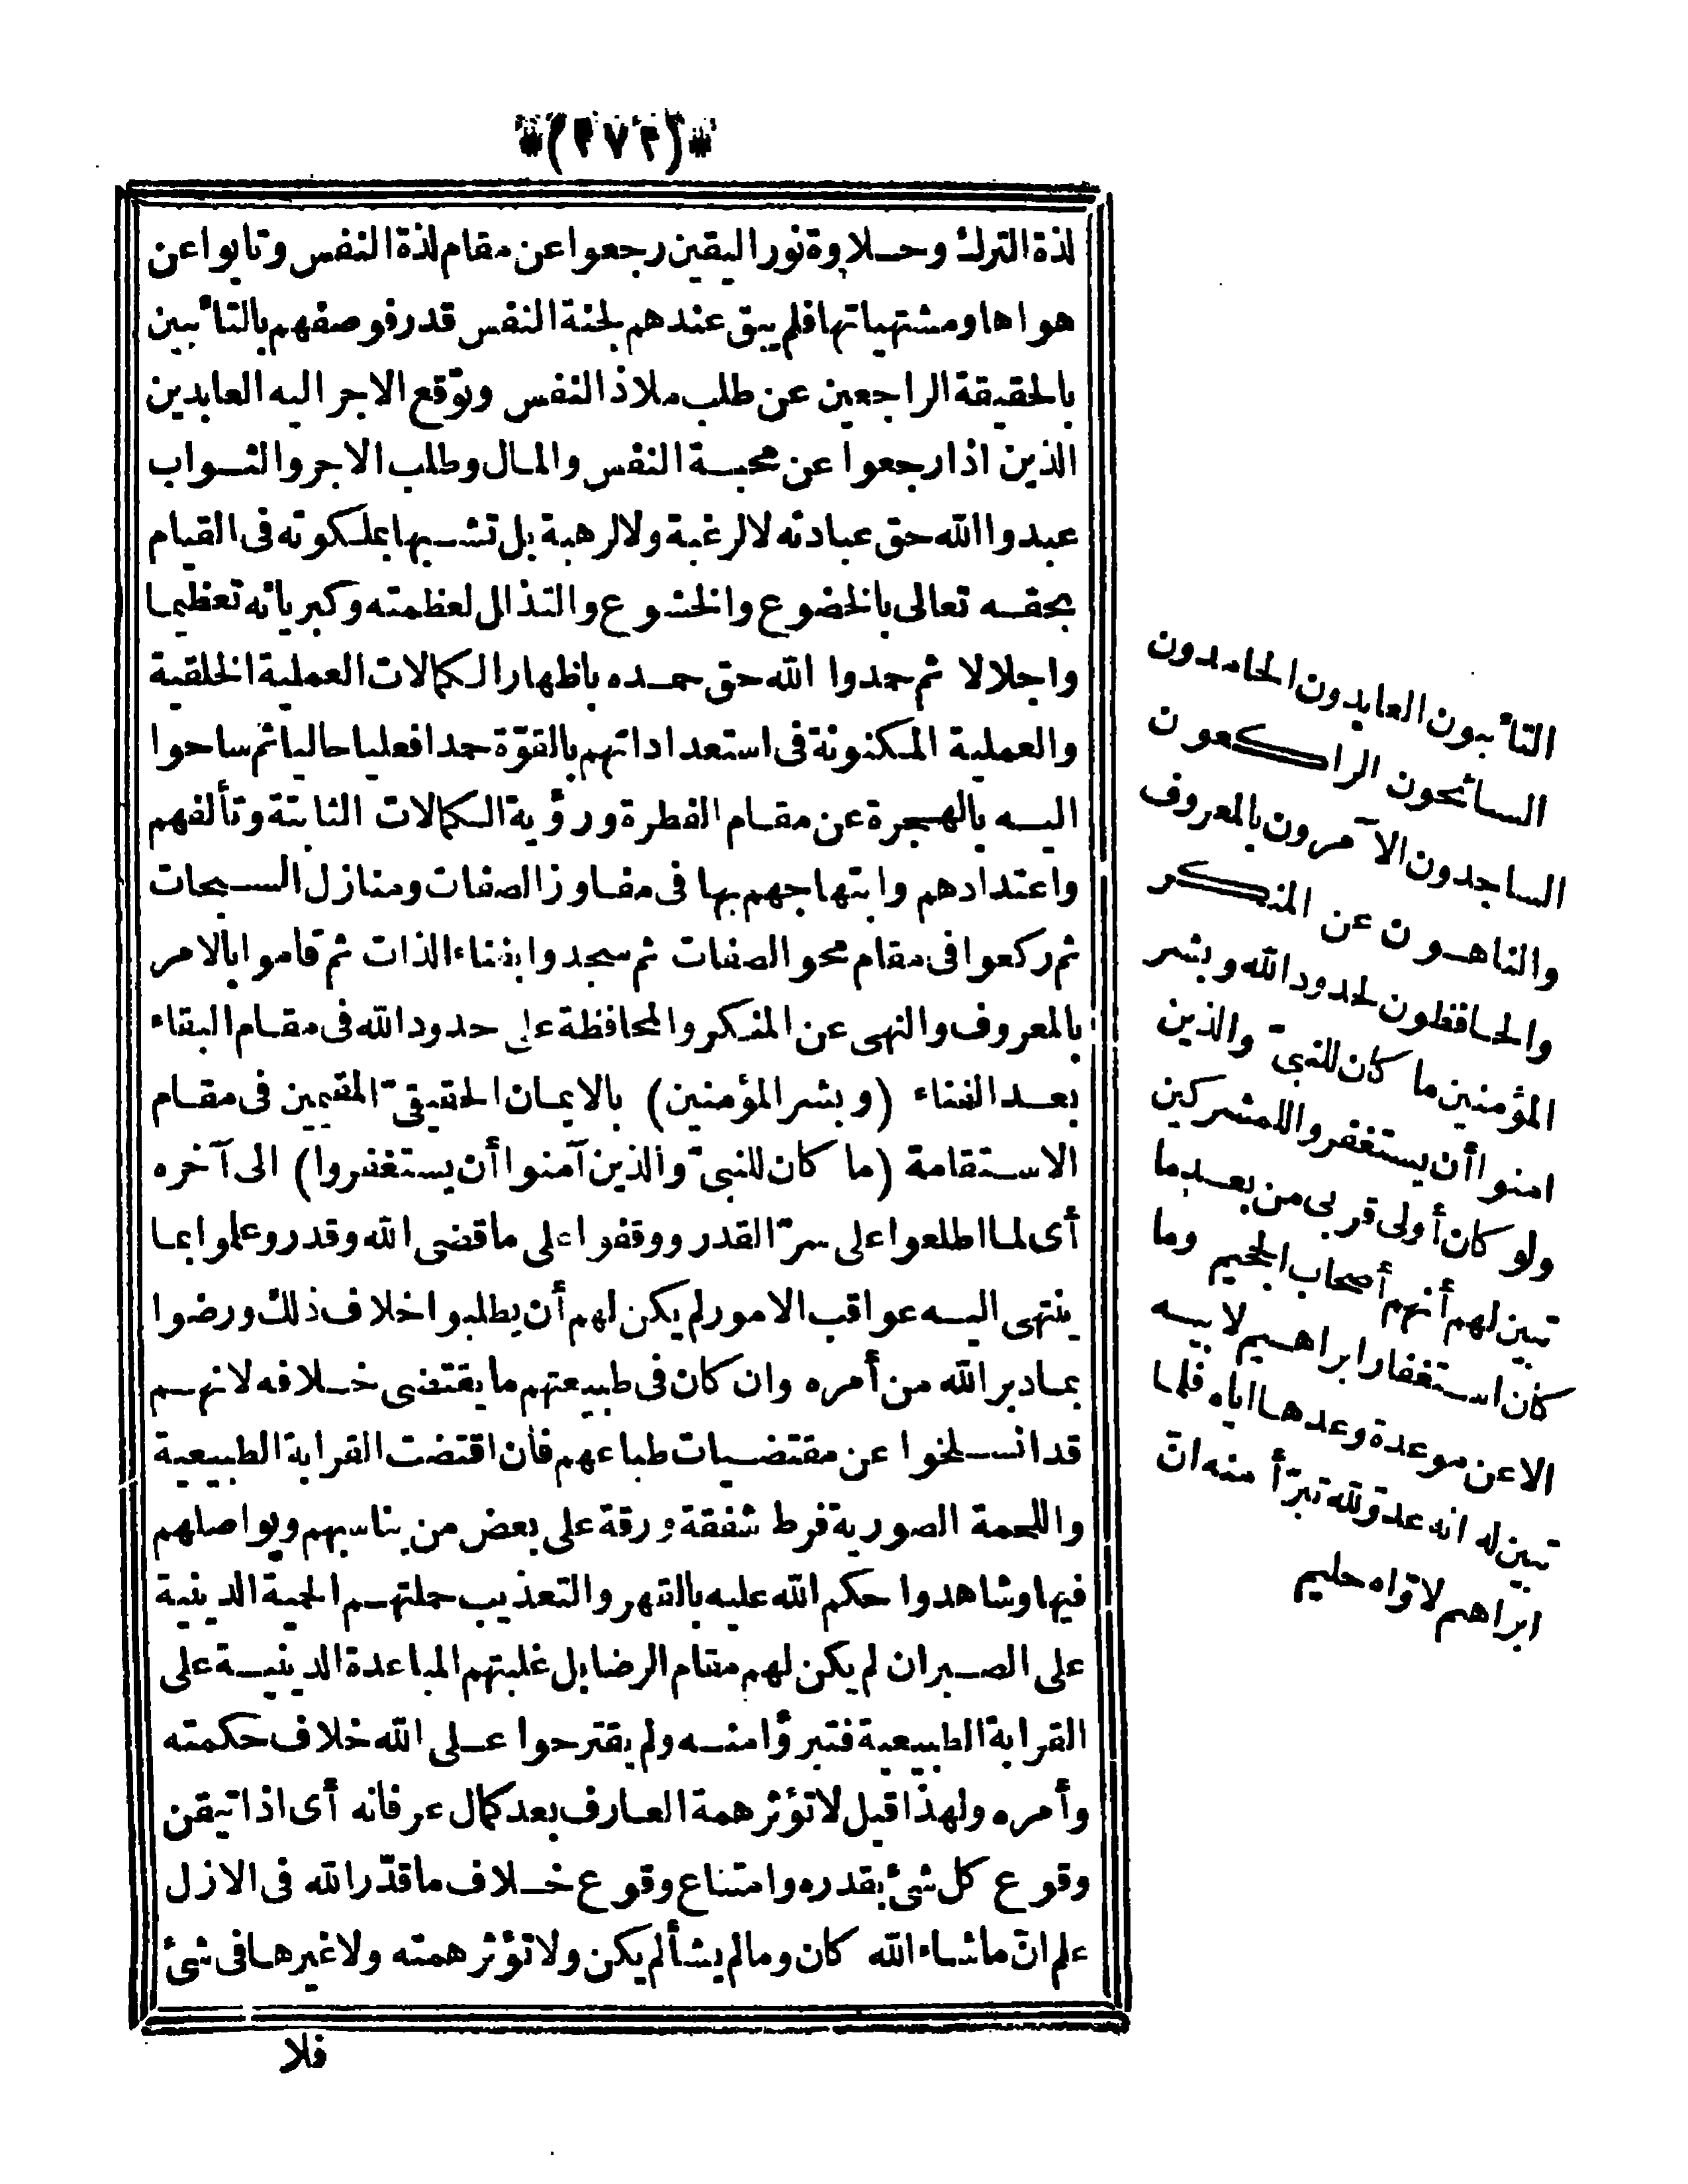 *(٢٧٢)*
لذة الترك وحلاوة نور اليقين رجعوا عن مقام لذة النفس وتابوا عن
هواها ومشتهياتها فلم يبق عندهم لجنة النفس قدر فوصفهم بالتائبين
بالحقيقة الراجعين عن طلب ملاذ النفس وتوقع الاجر اليه العابدين
الذين اذا رجعوا عن محبة النفس والمال وطلب الاجر والثواب
عبدوا الله حق عبادته لا لرغبة ولا لرهبة بل تشبها بملكوته فى القيام
بحقه تعالى بالخضوع والخشوع والتذلل لعظمته وكبريائه تعظيما
واجلالا ثم حمدوا الله حق حمده باظهار الكمالات العملية الخلقية
والعملية المكنونة فى استعداداتهم بالقوّة حمدا فعليا حاليا ثم ساحوا
اليه بالهجرة عن مقام الفطرة ورؤية الكمالات الثابتة وتألفهم
واعتدادهم وابتهاجهم بها فى مفاوز الصفات ومنازل السبحات
ثم ركعوا فى مقام محو الصفات ثم سجدوا بفناء الذات ثم قاموا بالامر
بالمعروف والنهى عن المنكر والمحافظة على حدود الله فى مقام البقاء
بعد الفناء (وبشر المؤمنين) بالايمان الحقيقىّ المقيمين فى مقام
الاستقامة (ما كان للنبىّ والذين آمنوا أن يستغفروا) الى آخره
أى لما اطلعوا على سرّ القدر ووقفوا على ما قضى الله وقدر وعلموا بما
ينتهى اليه عواقب الامور لم يكن لهم أن يطلبوا خلاف ذلك ورضوا
بما دبر الله من أمره وان كان فى طبيعتهم ما يقتضى خلافه لانهم
قد انسلخوا عن مقتضيات طباعهم فان اقتضت القرابة الطبيعية
واللحمة الصورية فرط شفقة ورقة على بعض من يناسبهم ويواصلهم
فيها وشاهدوا حكم الله عليه بالقهر والتعذيب حملتهم الحمية الدينية
على الصبر ان لم يكن لهم مقام الرضا بل غلبتهم المباعدة الدينية على
القرابة الطبيعية فتبرؤا منه ولم يقترحوا على الله خلاف حكمته
وأمره ولهذا قيل لا تؤثر همة العارف بعد كمال عرفانه أى اذا تيقن
وقوع كل شئ بقدره وامتناع وقوع خلاف ما قدّر الله فى الازل
علم انّ ما شاء الله كان وما لم يشأ لم يكن ولا تؤثر همته ولا غيرها فى شئ
فلا
التائبون العابدون الحامدون
السائحون الراكعون
الساجدون الآمرون بالمعروف
والناهون عن المنكر
والحافظون لحدود الله وبشر
المؤمنين ما كان للنبىّ والذين
امنوا أن يستغفروا للمشركين
ولو كان أولى قربى من بعد ما
تبين لهم أنهم أصحاب الجحيم وما
كان استغفار ابراهيم لابيه
الا عن موعدة وعدها اياه فلما
تبين له انه عدوّ لله تبرّأ منه انّ
ابراهيم لاوّاه حليم